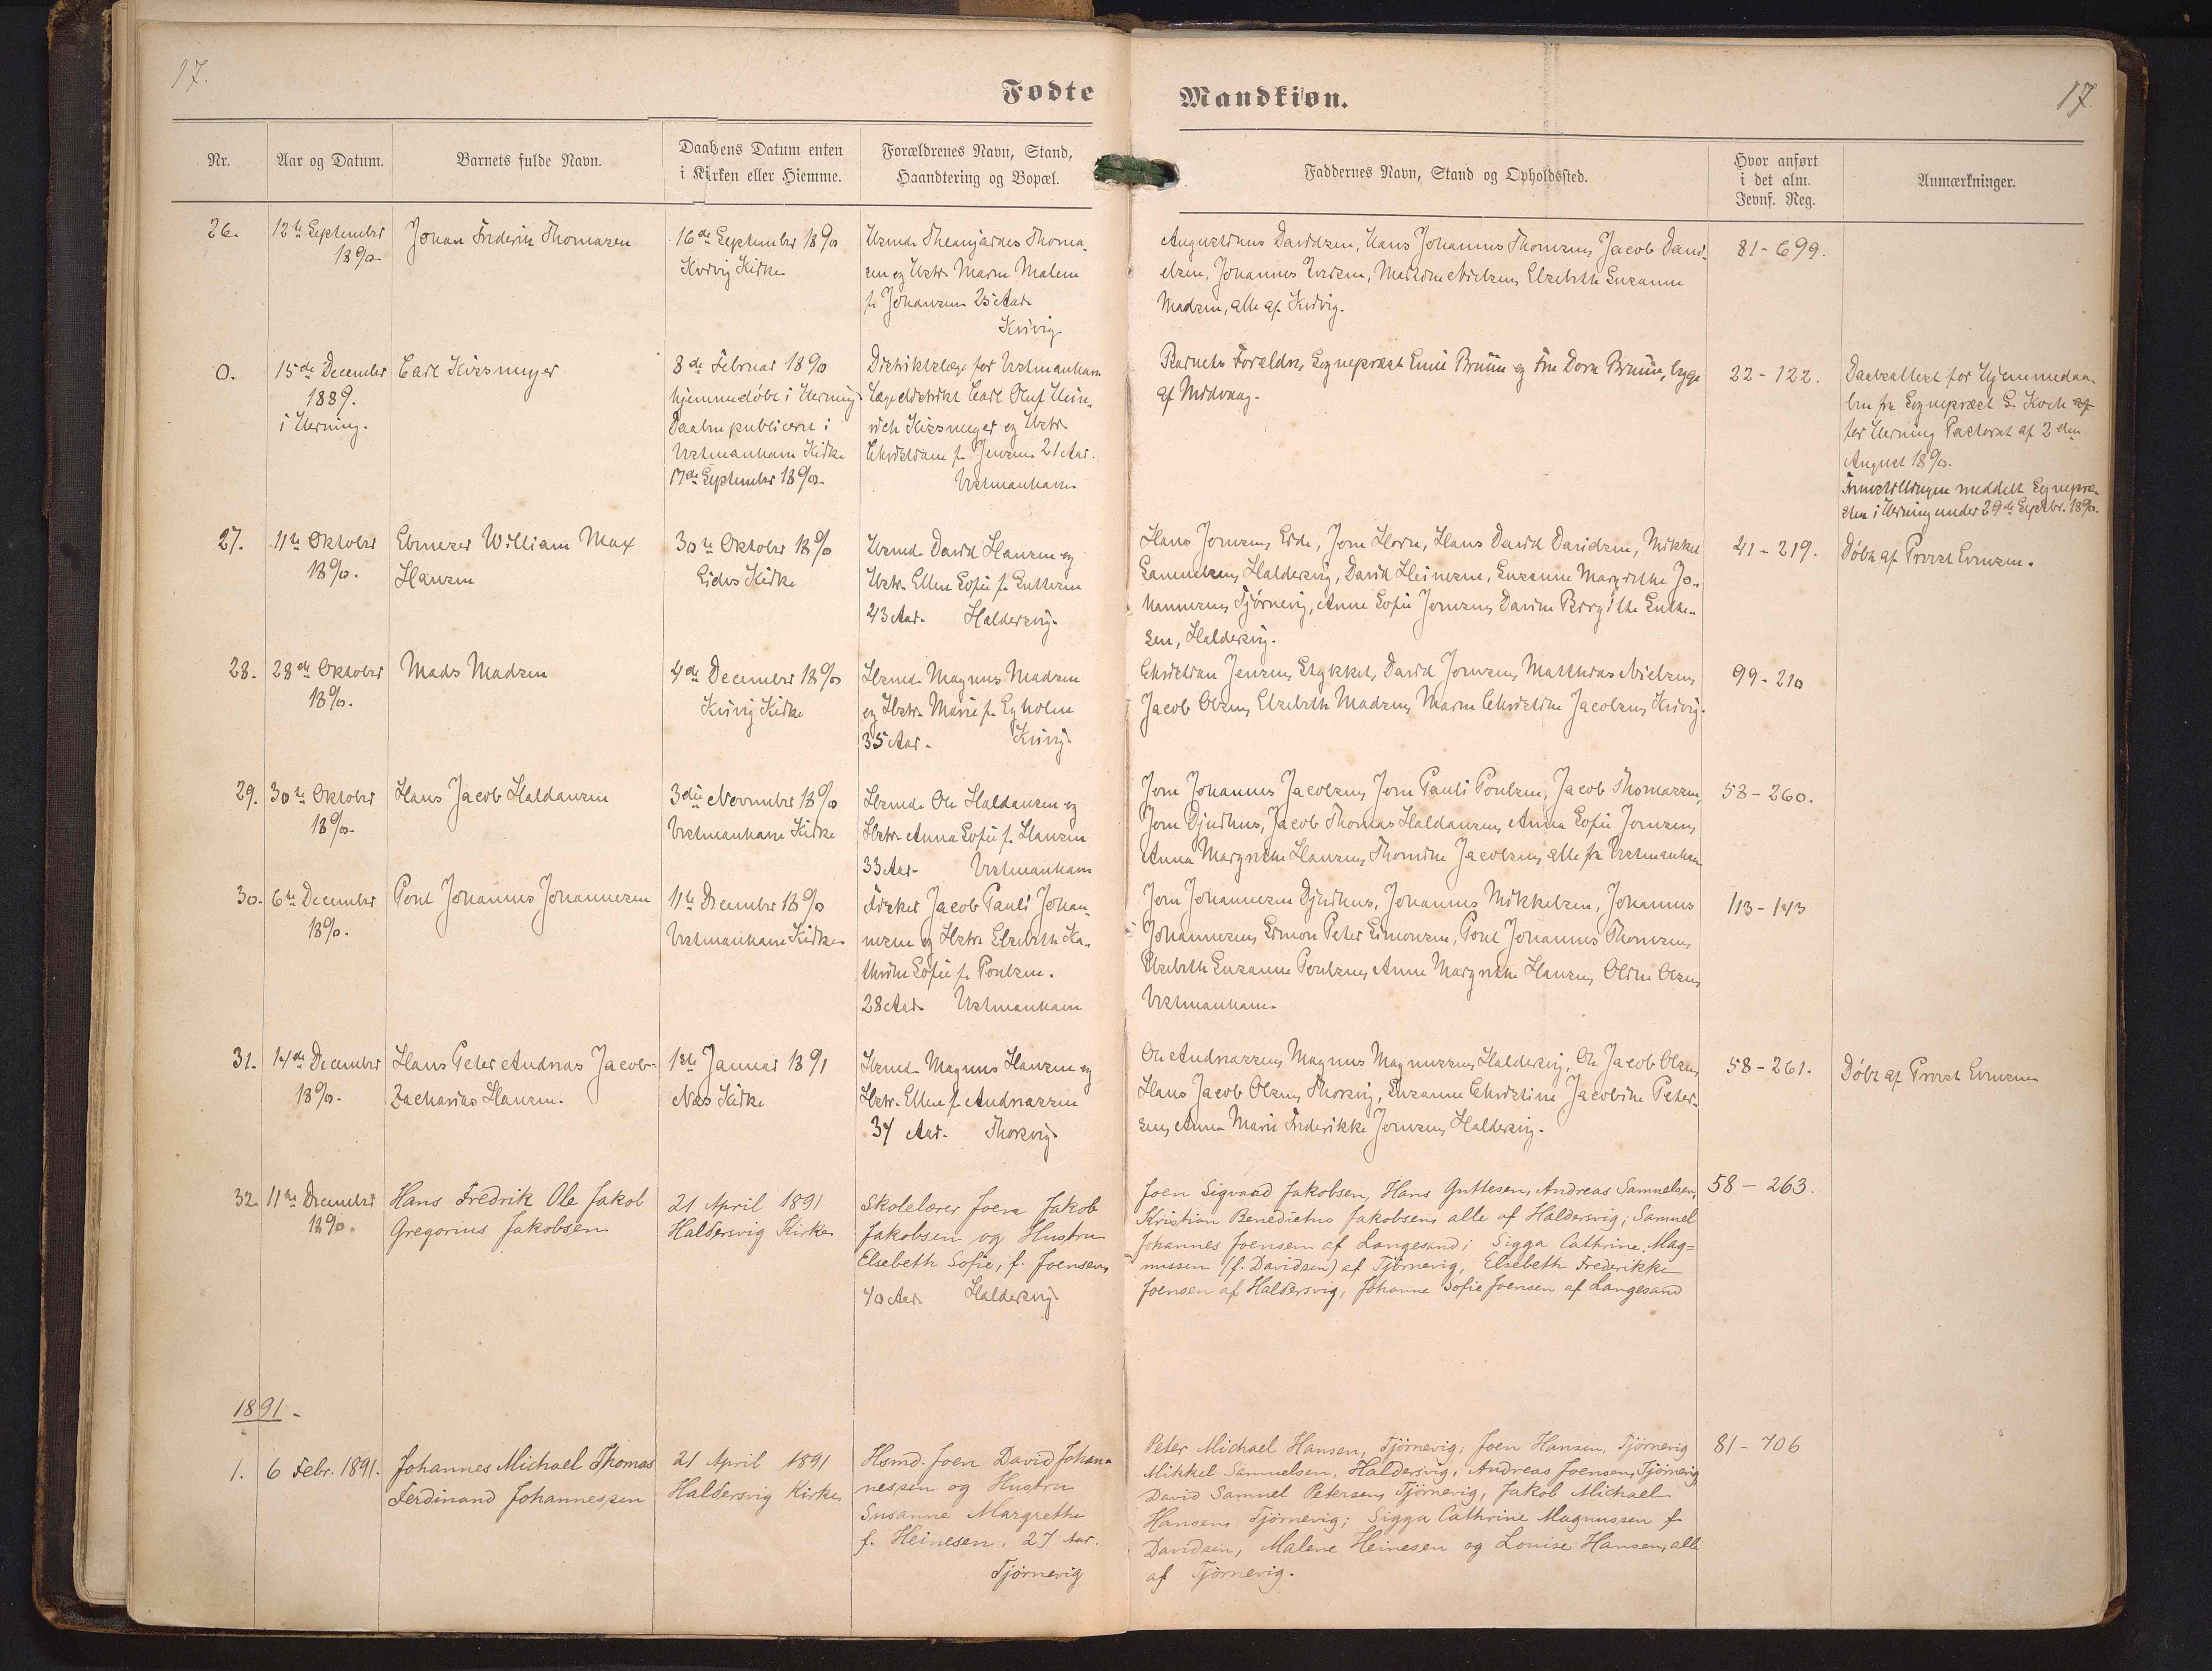 17.
Fødte
Mandkiøn.
17
Nr.
Aar og Datum.
Barnets fulde Navn.
Daabens Datum enten
i Kirken eller Hiemme.
Forældrenes Navn, Stand,
Haandtering og Bopæl.
Faddernes Navn, Stand og Opholdssted.
Hvor anført
i det alm.
Jevnf. Reg.
Anmærkninger.
26.
12te September
1890
Johan Frederik Thomasen
16de September 1890
Kvivig Kirke
Hsmd. Thomas
sen og Hstr. Maren Malene
f. Johansen 25 Aar.
Kvivig
Augustinus Davidsen, Hans Johannes Thomsen, Jacob Dani-
elsen, Johannes Nielsen, Elsebeth Susanne
Madsen, alle af Kvivig.
81-699.
0.
15de December
1889.
i Herning.
Carl Kissmeyer
8de Februar 1890
hjemmedøbt i Herning
Daaben publiceret i
Vestmanhavn Kirke
17de September 1890
Distriktslæge for Vestmanhavn
Lægedistrikt Carl Oluf Hein-
rich Kissmeyer og Hstr.
Christiane f. Jensen 21 Aar.
Vestmanhavn
Barnets Forældre, Sognepræst Emil Bruun og Fru Dora Bruun, begge
af Midvaag.
22-122.
Daabsattest for Hjemmedaa-
ben fra Sognepræst Koch
for Herning Pastorat af 2den
August 1890.
meddelt Sognepræ-
sten i Herning under 29de Septbr. 1890.
27.
11te Oktober
1890.
Ebenezer William Max
Hansen
30te Oktober 1890
Eides Kirke
Hsmd. David Hansen og
Hstr. Ellen Sofie f. Guttesen
43 Aar. Haldersvig.
Hans Joensen, Eide, Joen Horn, Hans David Davidsen, Mikkel
Samuelsen, Haldersvig, David Heinesen, Susanne Margrethe Jo-
hannesen, Tjørnevig, Anne Sofie Joensen, Davine Birgithe Gutte-
sen, Haldersvig.
41-219.
Døbt af Provst Evensen.
28.
28de Oktober
1890.
Mads Madsen
4de December 1890
Kvivig Kirke
Hsmd. Magnus Madsen
og Hstr. Marie f. Egholm
35 Aar. Kvivig
Christian Jensen, Stykket, David Joensen, Matthias Nielsen,
Jacob Olsen, Elsebeth Madsen, Maren Christine Jacobsen, Kvivig.
99-210
29.
30te Oktober
1890.
Hans Jacob Haldansen
3die November 1890
Vestmanhavn Kirke
Hsmd. Ole Haldansen og
Hstr. Anna Sofie f. Hansen
33 Aar. Vestmanhavn
Joen Johannes Jacobsen, Joen Pauli Poulsen, Jacob Thomassen,
Joen Djurhus, Jacob Thomas Haldansen, Anna Sofie Joensen,
Anna Margrethe Hansen, Thomine Jacobsen, alle fra Vestmanhavn
58-260.
30.
6te December
1890.
Poul Johannes Johannesen
11te December 1890
Vestmanhavn Kirke
Fisker Jacob Pauli Johan-
nesen og Hstr. Elsebeth Ka-
thrine Sofie f. Poulsen.
28 Aar. Vestmanhavn
Joen Johannesen Djurhus, Johannes Mikkelsen, Johannes
Johannesen, Simon Peter Simonsen, Poul Johannes Thomsen,
Elsebeth Susanne Poulsen, Anne Margrethe Hansen, Oline Olsen,
Vestmanhavn.
113-143
31.
14de December
1890.
Hans Peter Andreas Jacob
Zacharias Hansen.
1ste Januar 1891
Næs Kirke
Hsmd. Magnus Hansen og
Hstr. Ellen f. Andreassen
34 Aar. Thorsvig.
Ole Andreassen, Magnus Magnussen, Haldersvig, Ole Jacob Olsen,
Hans Jacob Olsen, Thorsvig, Susanne Christine Jacobine Peter-
sen, Anna Marie Frederikke Joensen, Haldersvig.
58-261.
Døbt af Provst Evensen
32.
11te December
1890.
Hans Fredrik Ole Jakob
Gregorius Jakobsen
21 April 1891
Haldersvig Kirke
Skolelærer Joen Jakob
Jakobsen og Hustru
Elsebeth Sofie, f. Joensen
40 Aar. Haldersvig.
Joen Sigvard Jakobsen, Hans Guttesen, Andreas Samuelsen,
Kristian Benedictus Jakobsen, alle af Haldersvig; Samuel
Johannes Joensen af Langesand; Sigga Cathrine Mag=
nussen (f. Davidsen) af Tjørnevig, Elsebeth Frederikke
Joensen af Haldersvig, Johanne Sofie Joensen af Langesand
58-263.
1891-
1.
6 Febr. 1891.
Johannes Michael Thomas
Ferdinand Johannessen
21 April 1891
Haldersvig Kirke
Hsmd. Joen David Johan-
nessen og Hustru
Susanne Margrethe
f. Heinesen, 27 Aar.
Tjörnevig
Peter Michael Hansen, Tjörnevig; Joen Hansen, Tjörnevig
Mikkel Samuelsen, Haldersvig, Andreas Joensen, Tjörnevig
David Samuel Petersen, Tjörnevig, Jakob Michael
Hansen, Tjörnevig; Sigga Cathrine Magnussen f.
Davidsen, Malene Heinesen og Louise Hansen, alle
af Tjörnevig.
81-706